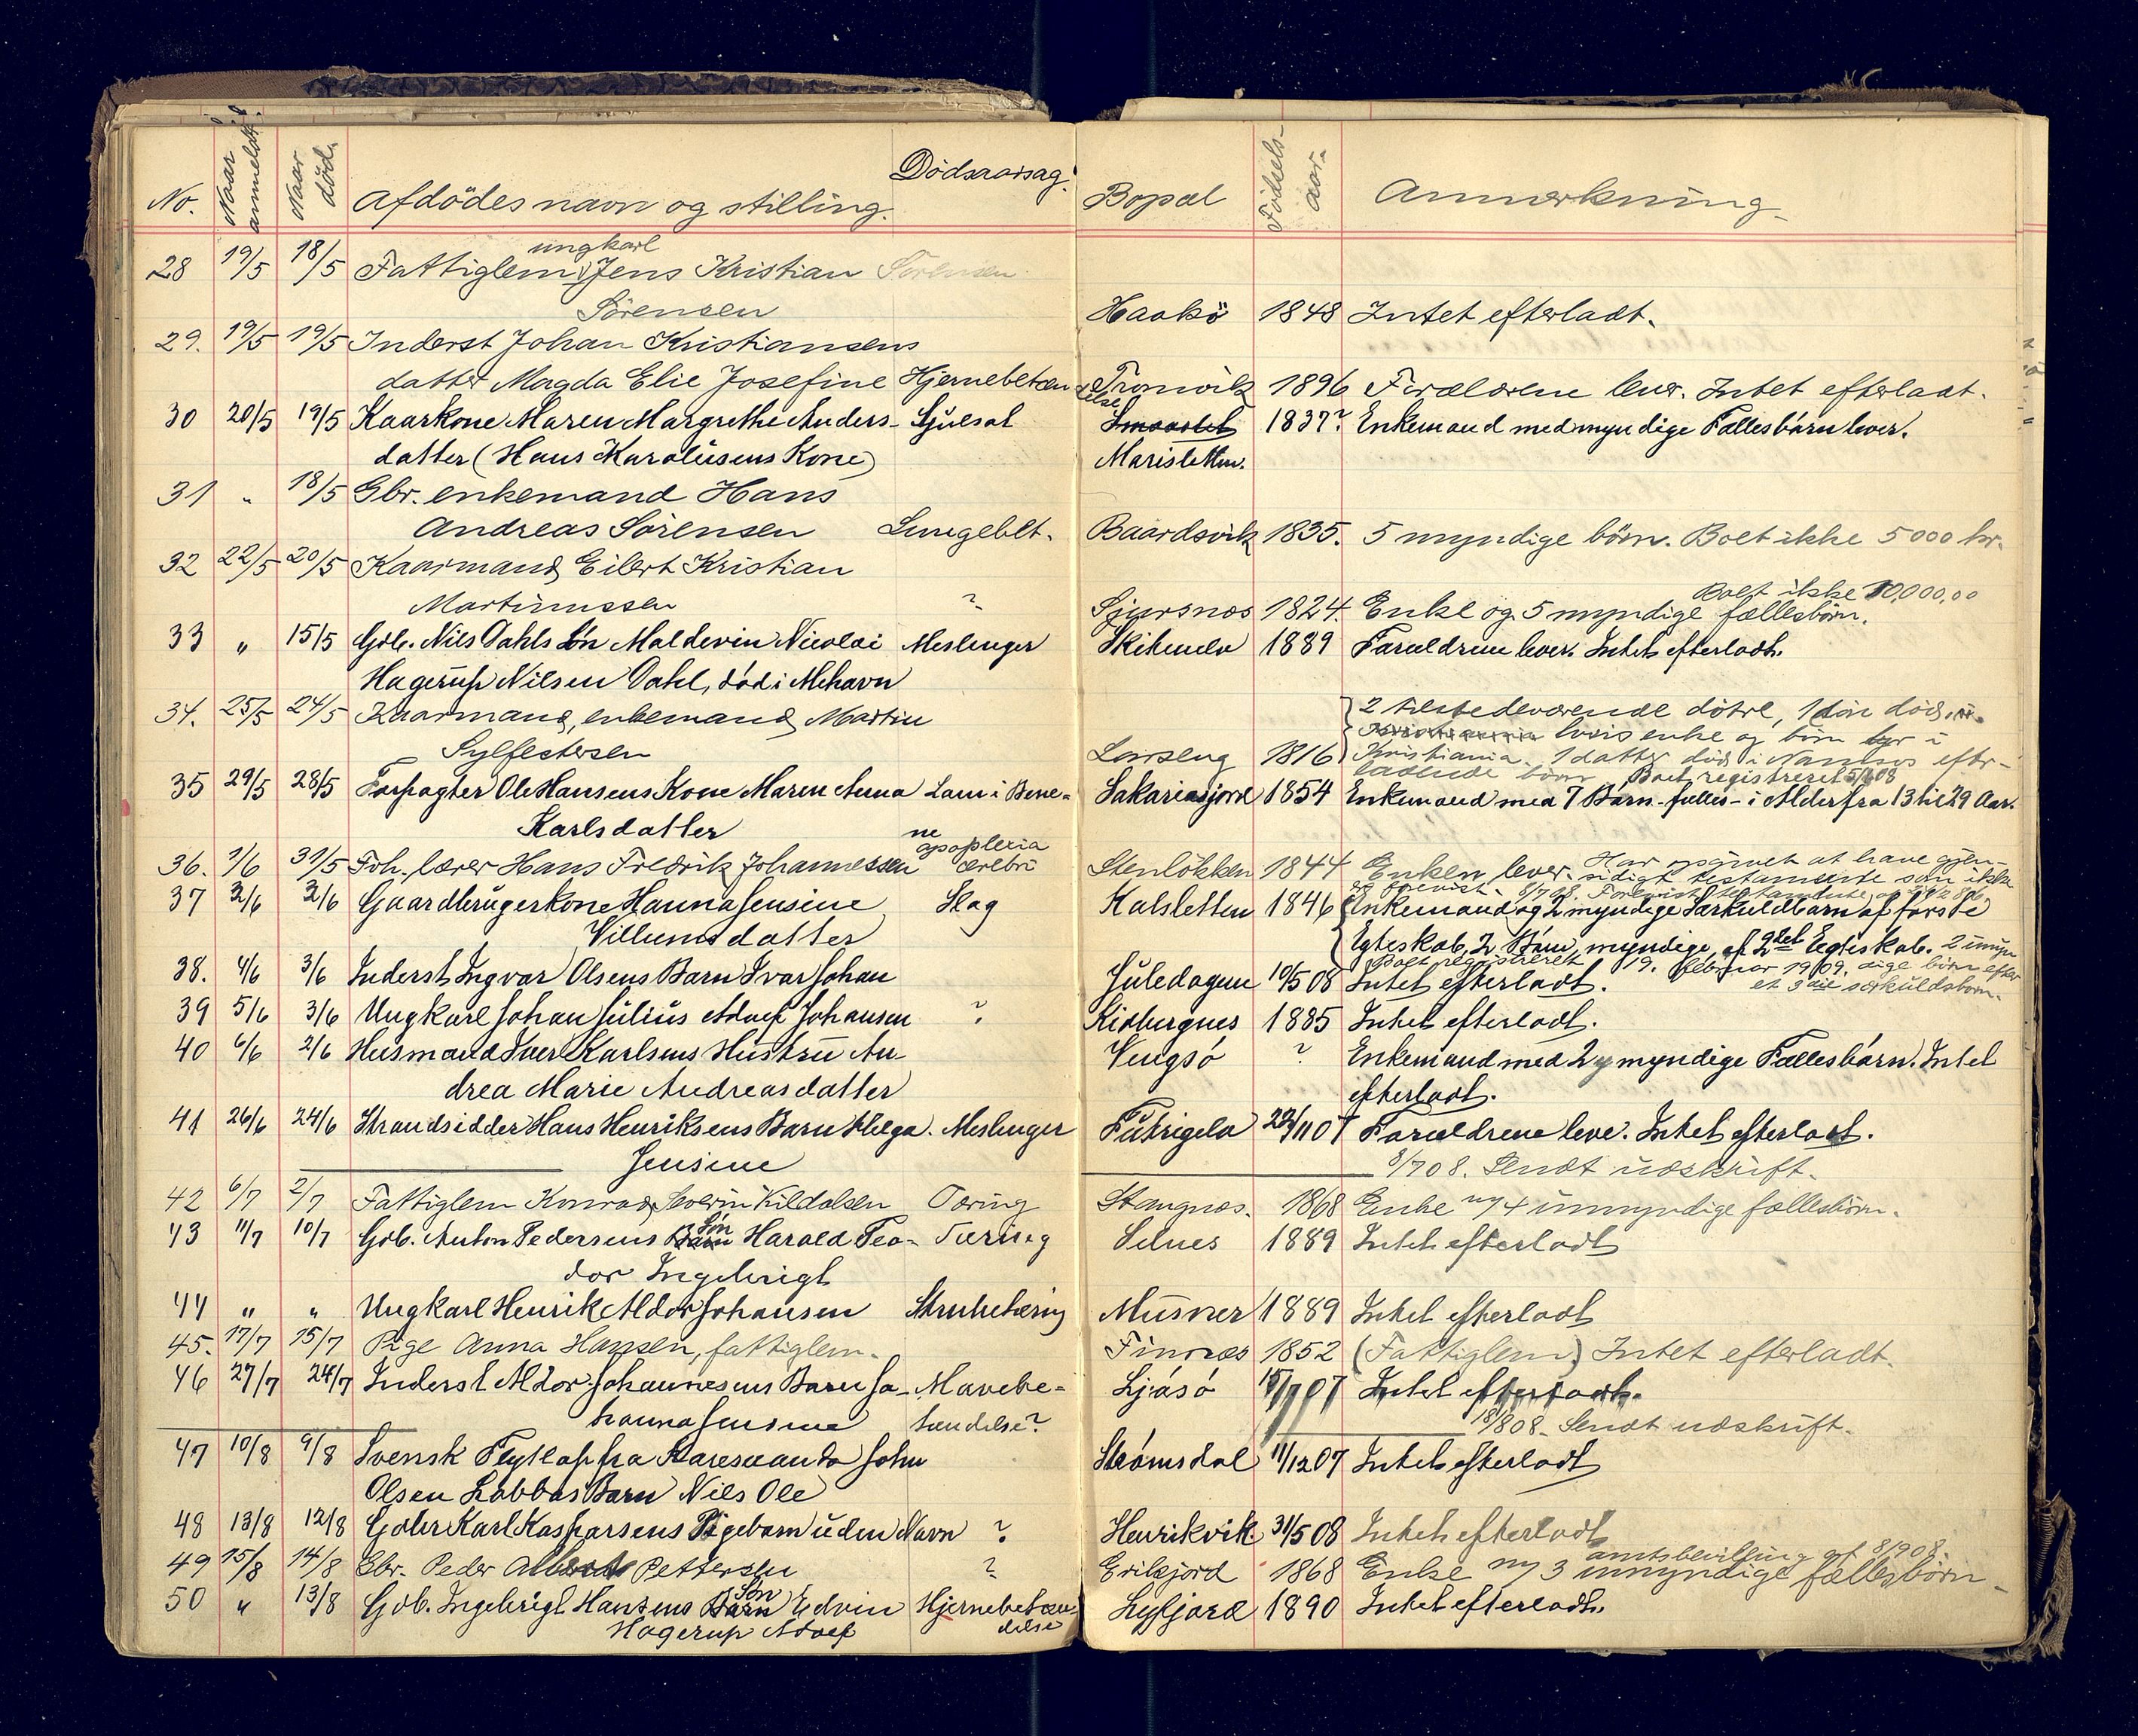 No. Naar anmeldt. Naar död. Afdödes navn og stilling. Dödsaarsag. Bopæl Födsels-aar. Anmerkning.
ungkarl
28 19/5 18/5 Fattiglem Jens Kristian Sörensen
Sörensen Haakö 1848 Intet efterladt.
29. 19/5 19/5 Inderst Johan Kristiansens
datter Magda Elie Josefine Hjernebetæn- Tromvik 1896 Forældrene lever. Intet efterladt.
delse
30 20/5 19/5 Kaarkone Maren Margrethe Anders- Hjulsot 1837? Enkemand med myndige Fællesbørn lever.
datter (Hans Karolüsens Kone) Marisletten.
31 " 18/5 Gbr. enkemand Hans
Andreas Sörensen Lungebet. Baardsvik 1835. 5 myndige börn. Boet ikke 5000 kr.
32 22/5 20/5 Kaarmand Eilert Kristian
Boet ikke 10,000,00
Martinussen ? Sjursnæs 1824. Enke og 5 myndige fællesbörn.
33 " 15/5 Gbr. Nils Dahls Søn Maldevin Nicolai Meslinger 1889 Forældrene lever. Intet efterladt.
Hagerup Nilsen Dahl, død i Mehavn
34. 25/5 24/5 Kaarmand, enkemand Martin 2 tilstedeværende dötre, 1 sön död i
hvis enke og börn bor i
Sylfestersen Larseng 1816 Kristiania. 1 datter död i Namsos efter-
ladende börn. Boet registreret
35 29/5 28/5 Forpagter Ole Hansens Kone Maren Anna Lam i Bene- Sakariasjord 1854 Enkemand med 7 Børn - fælles - i Alder fra 13 til 29 Aar.
Karlsdatter ne
apoplexia
36. 1/6 31/5 Fh. lærer Hans Fredrik Johannessen cerebri Stenlökken 1844 Enken lever. Har opgivet at have gjen-
sidigt testamente som ikke
37 3/6 2/6 Gaardbrugerkone Hanna Jensine Slag Kalsletten 1846 Enkemand og 2 myndige Særkuldbarn af første
Villumsdatter Egteskab, 2 Børn, myndige, af 2det Egteskab. 2 umyn-
Boet registreret 19. februar 1909. dige börn efter
et 3die særkuldsbarn.
38. 4/6 3/6 Inderst Ingvar Olsens Barn Ivar Johan Juledagen 10/5 08 Intet efterladt.
39 5/6 3/6 Ungkarl Johan Julius Adolf Johansen ? Kidbergnes 1885 Intet efterladt.
40 6/6 2/6 Husmand Iver Karlsens Hustru An- Vengsø ? Enkemand med 2 myndige Fællesbørn. Intet
drea Marie Andreasdatter efterladt.
41 26/6 24/6 Strandsidder Hans Henriksens Barn Helga Meslinger Futrigelv 22/11 07 Forældrene leve. Intet efterladt.
Jensine 8/7 08. Sendt udskrift.
42 6/7 2/7 Fattiglem Konrad Severin Kildalsen Tæring Stangnæs. 1868 Enke m/ 4 umyndige fællesbörn.
43 11/7 10/7 Gbr. Anton Pedersens Barn Søn Harald Teo- Tæring Selnes 1889 Intet efterladt
dor Ingebrigt
44 " " Ungkarl Henrik Aldor Johansen Strubetæring Musvær 1889 Intet efterladt
45. 17/7 15/7 Pige Anna Hansen, fattiglem. Finnæs 1852 (Fattiglem) Intet efterladt.
46 27/7 24/7 Inderst Aldor Johannesens Barn Jo- Mavebe- Ljøsø 15/7 07 Intet efterladt.
hanna Jensine tændelse? 18/8 08. Sendt udskrift.
47 10/8 9/8 Svensk Flytlap fra Karesuando John Strømsdal 11/12 07 Intet efterladt
Olsen Labbas Barn Nils Ole
48 13/8 12/8 Gbr Karl Kasparsens Pigebarn uden Navn ? Henrikvik 31/5 08 Intet efterladt
amtsbevilling af 8/9 08.
49 15/8 14/8 Gbr. Peder Albert Pettersen ? Erikjord 1868 Enke m/ 3 umyndige fællesbörn
50 " 13/8 Gbr. Ingebrigt Hansens Barn Søn Edvin Hjernebetæn- Lyfjord 1890 Intet efterladt.
Hagerup Adolf delse